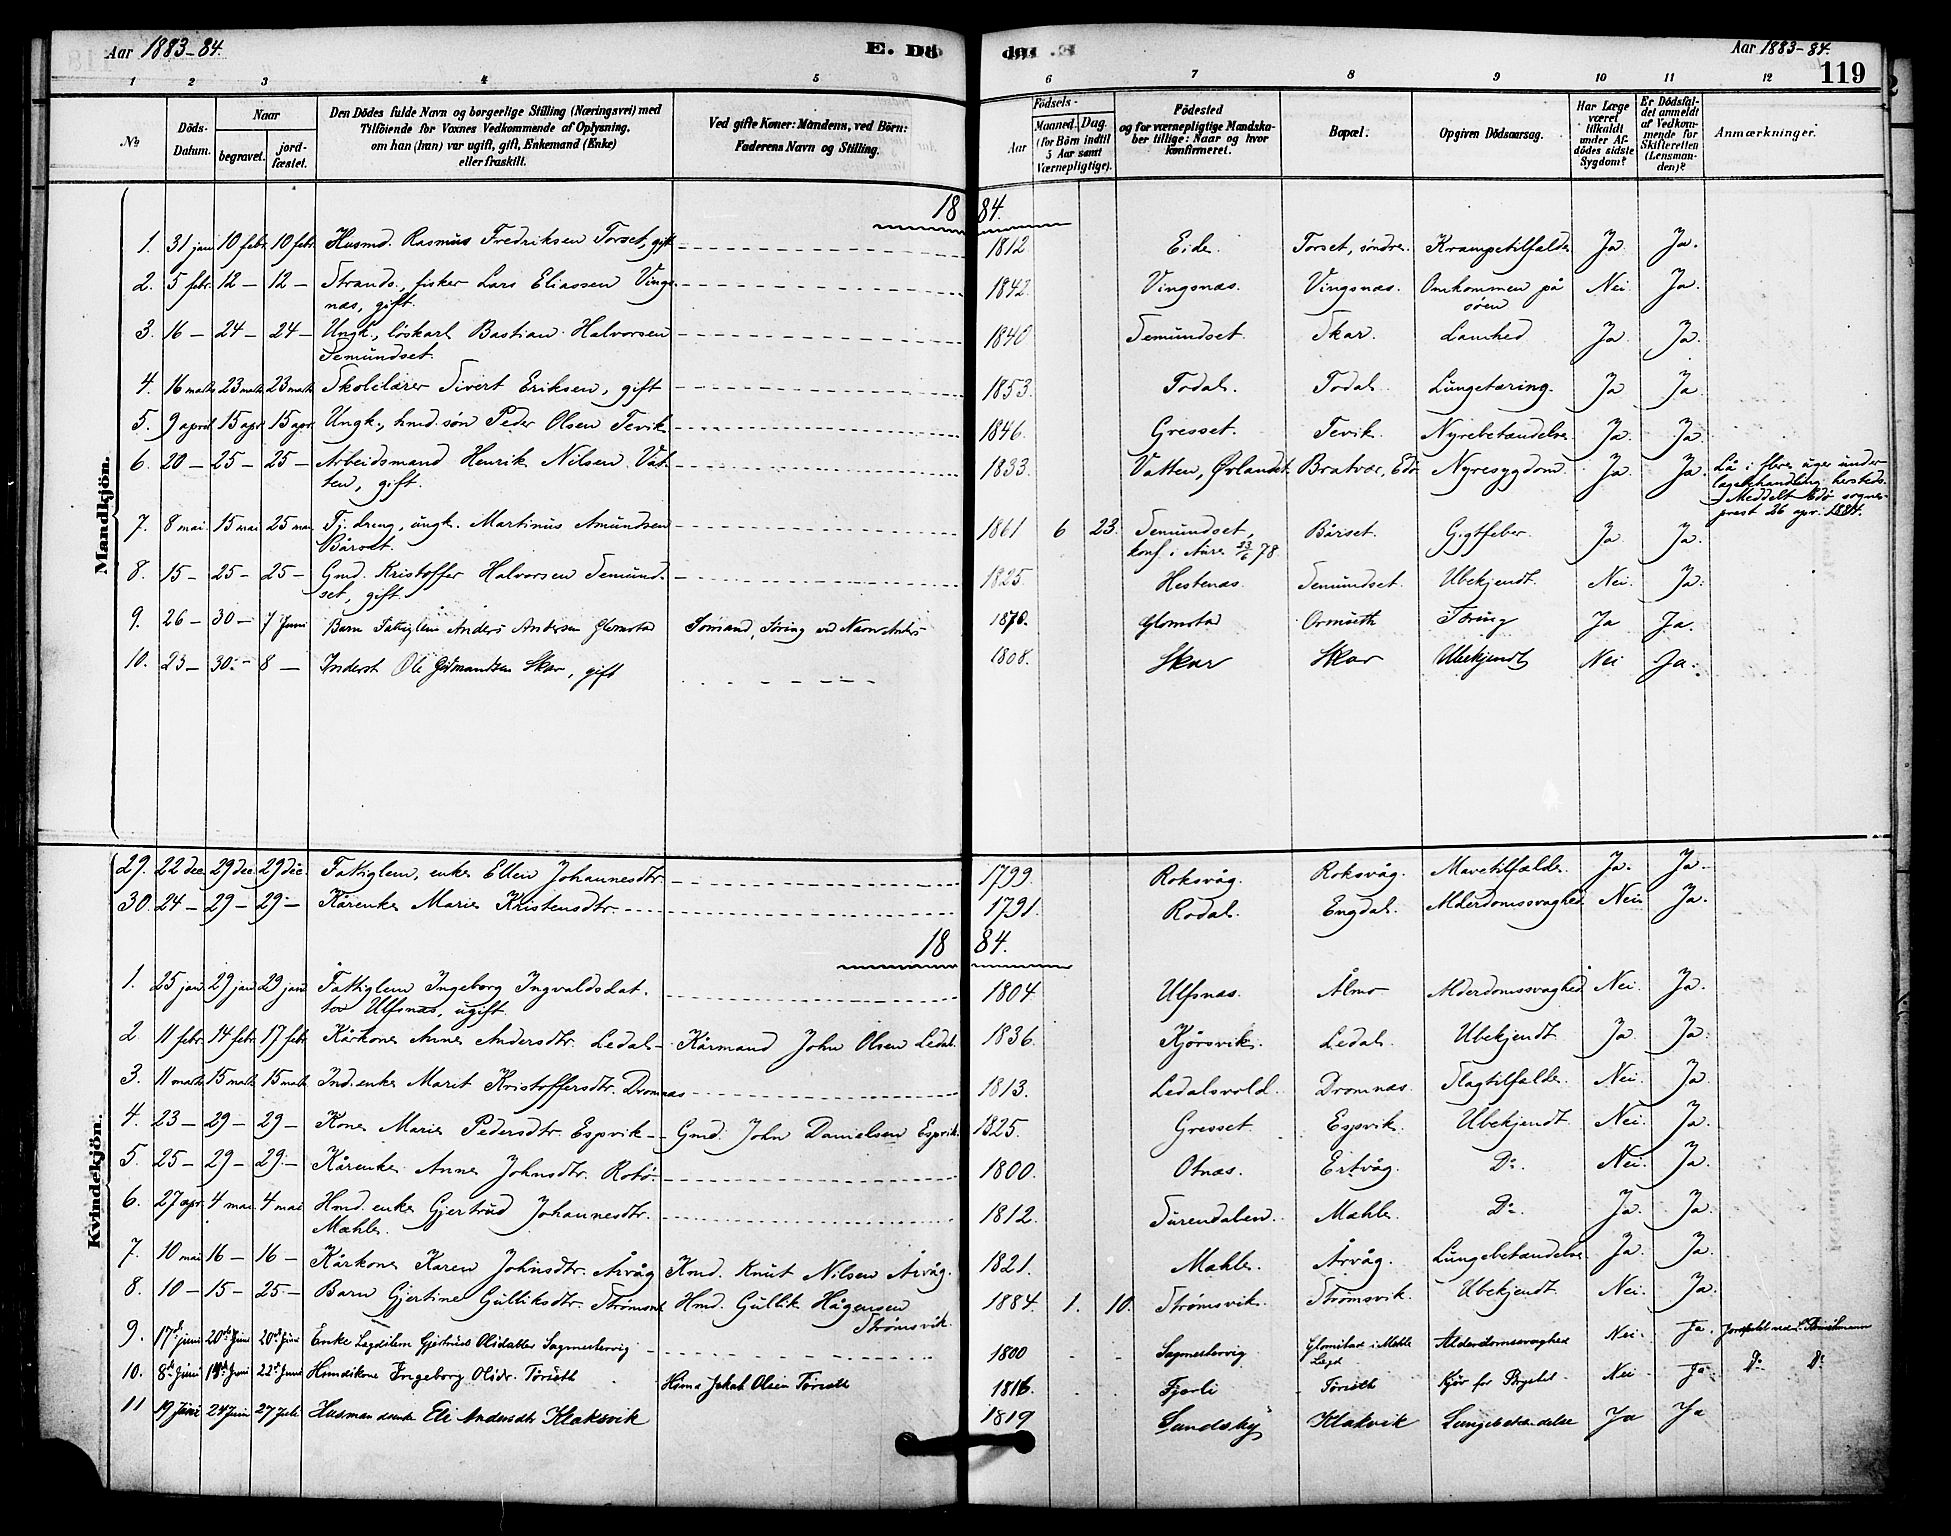 Aar 1883-84.
E. Dö
de.
Aar 1883-84.
119
1 2 3 4 5 6 7 8 9 10 11 12
No
Döds-Datum.
Naar
begravet.
jord-fæstet.
Den Dödes fulde Navn og borgerlige Stilling (Næringsvei) med
Tilföiende for Voxnes Vedkommende af Oplysning,
om han (hun) var ugift, gift, Enkemand (Enke)
eller fraskilt.
Ved gifte Koner: Mandens, ved Börn:
Faderens Navn og Stilling.
Födsels-
Aar
Maaned. Dag
(for Börn indtil
5 Aar samt
Værnepligtige).
Födested
og for værnepligtige Mandska-
ber tillige: Naar og hvor
konfirmeret.
Bopæl.
Opgiven Dödsaarsag.
Har Læge
været
tilkaldt
under Af-
dödes sidste
Sygdom?
Er Dödsfal-
det anmeldt
af Vedkom-
mende for
Skifteretten
(Lensman-
den)?
Anmærkninger.
Mandkjön.
18 84.
1. 31 jan 10 febr. 10 febr. Husmd. Rasmus Fredriksen Torset, gift 1812 Eide. Torset, søndre. Krampetilfælde Ja. Ja.
2. 5 febr. 12 – 12 – Strands., fisker Lars Eliassen Vings- 1842. Vingsnæs. Vingsnæs. Omkommen på Nei Ja.
næs, gift. søen
3. 16 – 24 – 24 – Ungk., løskarl Bastian Halvorsen 1840 Semundset. Skar. Lamhed Ja. Ja.
Semundset.
4. 16 marts 23 marts 23 marts Skolelærer Sivert Eriksen, gift 1853. Todal. Todal. Lungetæring. Ja Ja
5. 9 april 15 apr. 15 apr. Ungk., hmd. søn Peder Olsen Tevik 1846. Gresset. Tevik. Nyrebetændelse Ja. Ja
6. 20 – 25 – 25 – Arbeidsmand Henrik Nilsen Vat- 1833. Vatten, Ørlandet. Bratvær, Edø Nyresygdom. Ja. Ja. Lå i flere uger under
ten, gift. lægebehandling hersteds.
Meddelt Edø sogne-
prest 26 apr. 1884.
7. 8 mai 15 mai 25 mai Tj. dreng, ungk. Martinus Amundsen 1861 6 23. Semundset, Bårset. Gigtfeber. Ja Ja.
Bårset. konf. i Aure 23/6 78
8. 15 – 25 – 25 – Gmd. Kristoffer Halvorsen Semund- 1825. Hestenæs. Semundset. Ubekjendt. Nei. Ja.
set, gift.
9. 26 – 30 – 7 Juni Barn Fattiglem Anders Andersen Glomstad 1876. Glomstad Ormseth Tæring Ja Ja.
10. 23 – 30 – 8 – Inderst Ole Skar, gift 1808. Skar Skar Ubekjendt Nei Ja.
Kvindekjön.
29. 22 dec. 29 dec. 29 dec. Fattiglem, enke Ellen Johannesdtr. 1799. Roksvåg. Roksvåg. Mavetilfælde. Ja. Ja.
30. 24 – 29 – 29 – Kårenke Marie Kristensdtr. 1791. Rodal. Engdal. Alderdomssvaghed. Nei. Ja.
18 84.
1. 25 jan. 29 jan. 29 jan. Fattiglem Ingeborg Ingvaldsdat- 1804. Ulfsnæs. Ålmo Alderdomssvaghed. Nei. Ja.
ter Ulfsnæs, ugift.
2. 11 febr. 14 febr. 17 febr. Kårkone Anne Andersdtr. Ledal Kårmand John Olsen Ledal. 1836. Kjørsvik. Ledal. Ubekjendt Ja Ja.
3. 11 marts 15 marts 15 marts Ind. enke Marit Kristoffersdtr. Dromnæs 1813. Ledalsvold. Dromnæs. Slagtilfælde. Nei. Ja.
4. 23 – 29 – 29 – Kone Marie Pedersdtr Espvik Gmd. John Danielsen Espvik. 1825. Gresset. Espvik. Ubekjendt. Nei. Ja.
5. 25 – 29 – 29 – Kårenke Anne Johnsdtr. 1800. Otnæs. Ertvåg. Do. Nei. Ja.
6. 27 apr. 4 mai. 4 mai Hmd. enke Gjertrud Johannesdtr. 1812. Surendalen. Mæhle. Do Ja. Ja.
Mæhle.
7. 10 mai 16 – 16 – Kårkone Karen Johnsdtr. Årvåg Kmd. Knut Nilsen Årvåg. 1821. Mæhle. Årvåg. Lungebetændelse Ja. Ja.
8. 10 – 15 – 25 – Barn Gjertine Gulliksdtr. Strømsvik Hmd. Gullik Hågensen 1884. 1. 10. Strømsvik. Strømsvik. Ubekjendt Nei. Ja.
Strømsvik.
9. 17d juni 20d Juni 20d Juni Enke Lægdslem Gjertrud Olsdatter Sagmestervig 1800 Sagmestervig Glomstad i Mæhle Alderdomssvaghed Nei. Ja.
Lægd
10. 8d Juni 22d Juni Husm.kone Ingeborg Olsdr. Tørseth Husm. Jakob Olsen Tørseth 1816. Fjorli Tørseth Nei. Ja. Do Do
11 19 Juni 24 Juni 27 Juli Husmandsenke Eli Andersdtr Klaksvik 1819 Klakvik Lungebetændelse Ja Ja